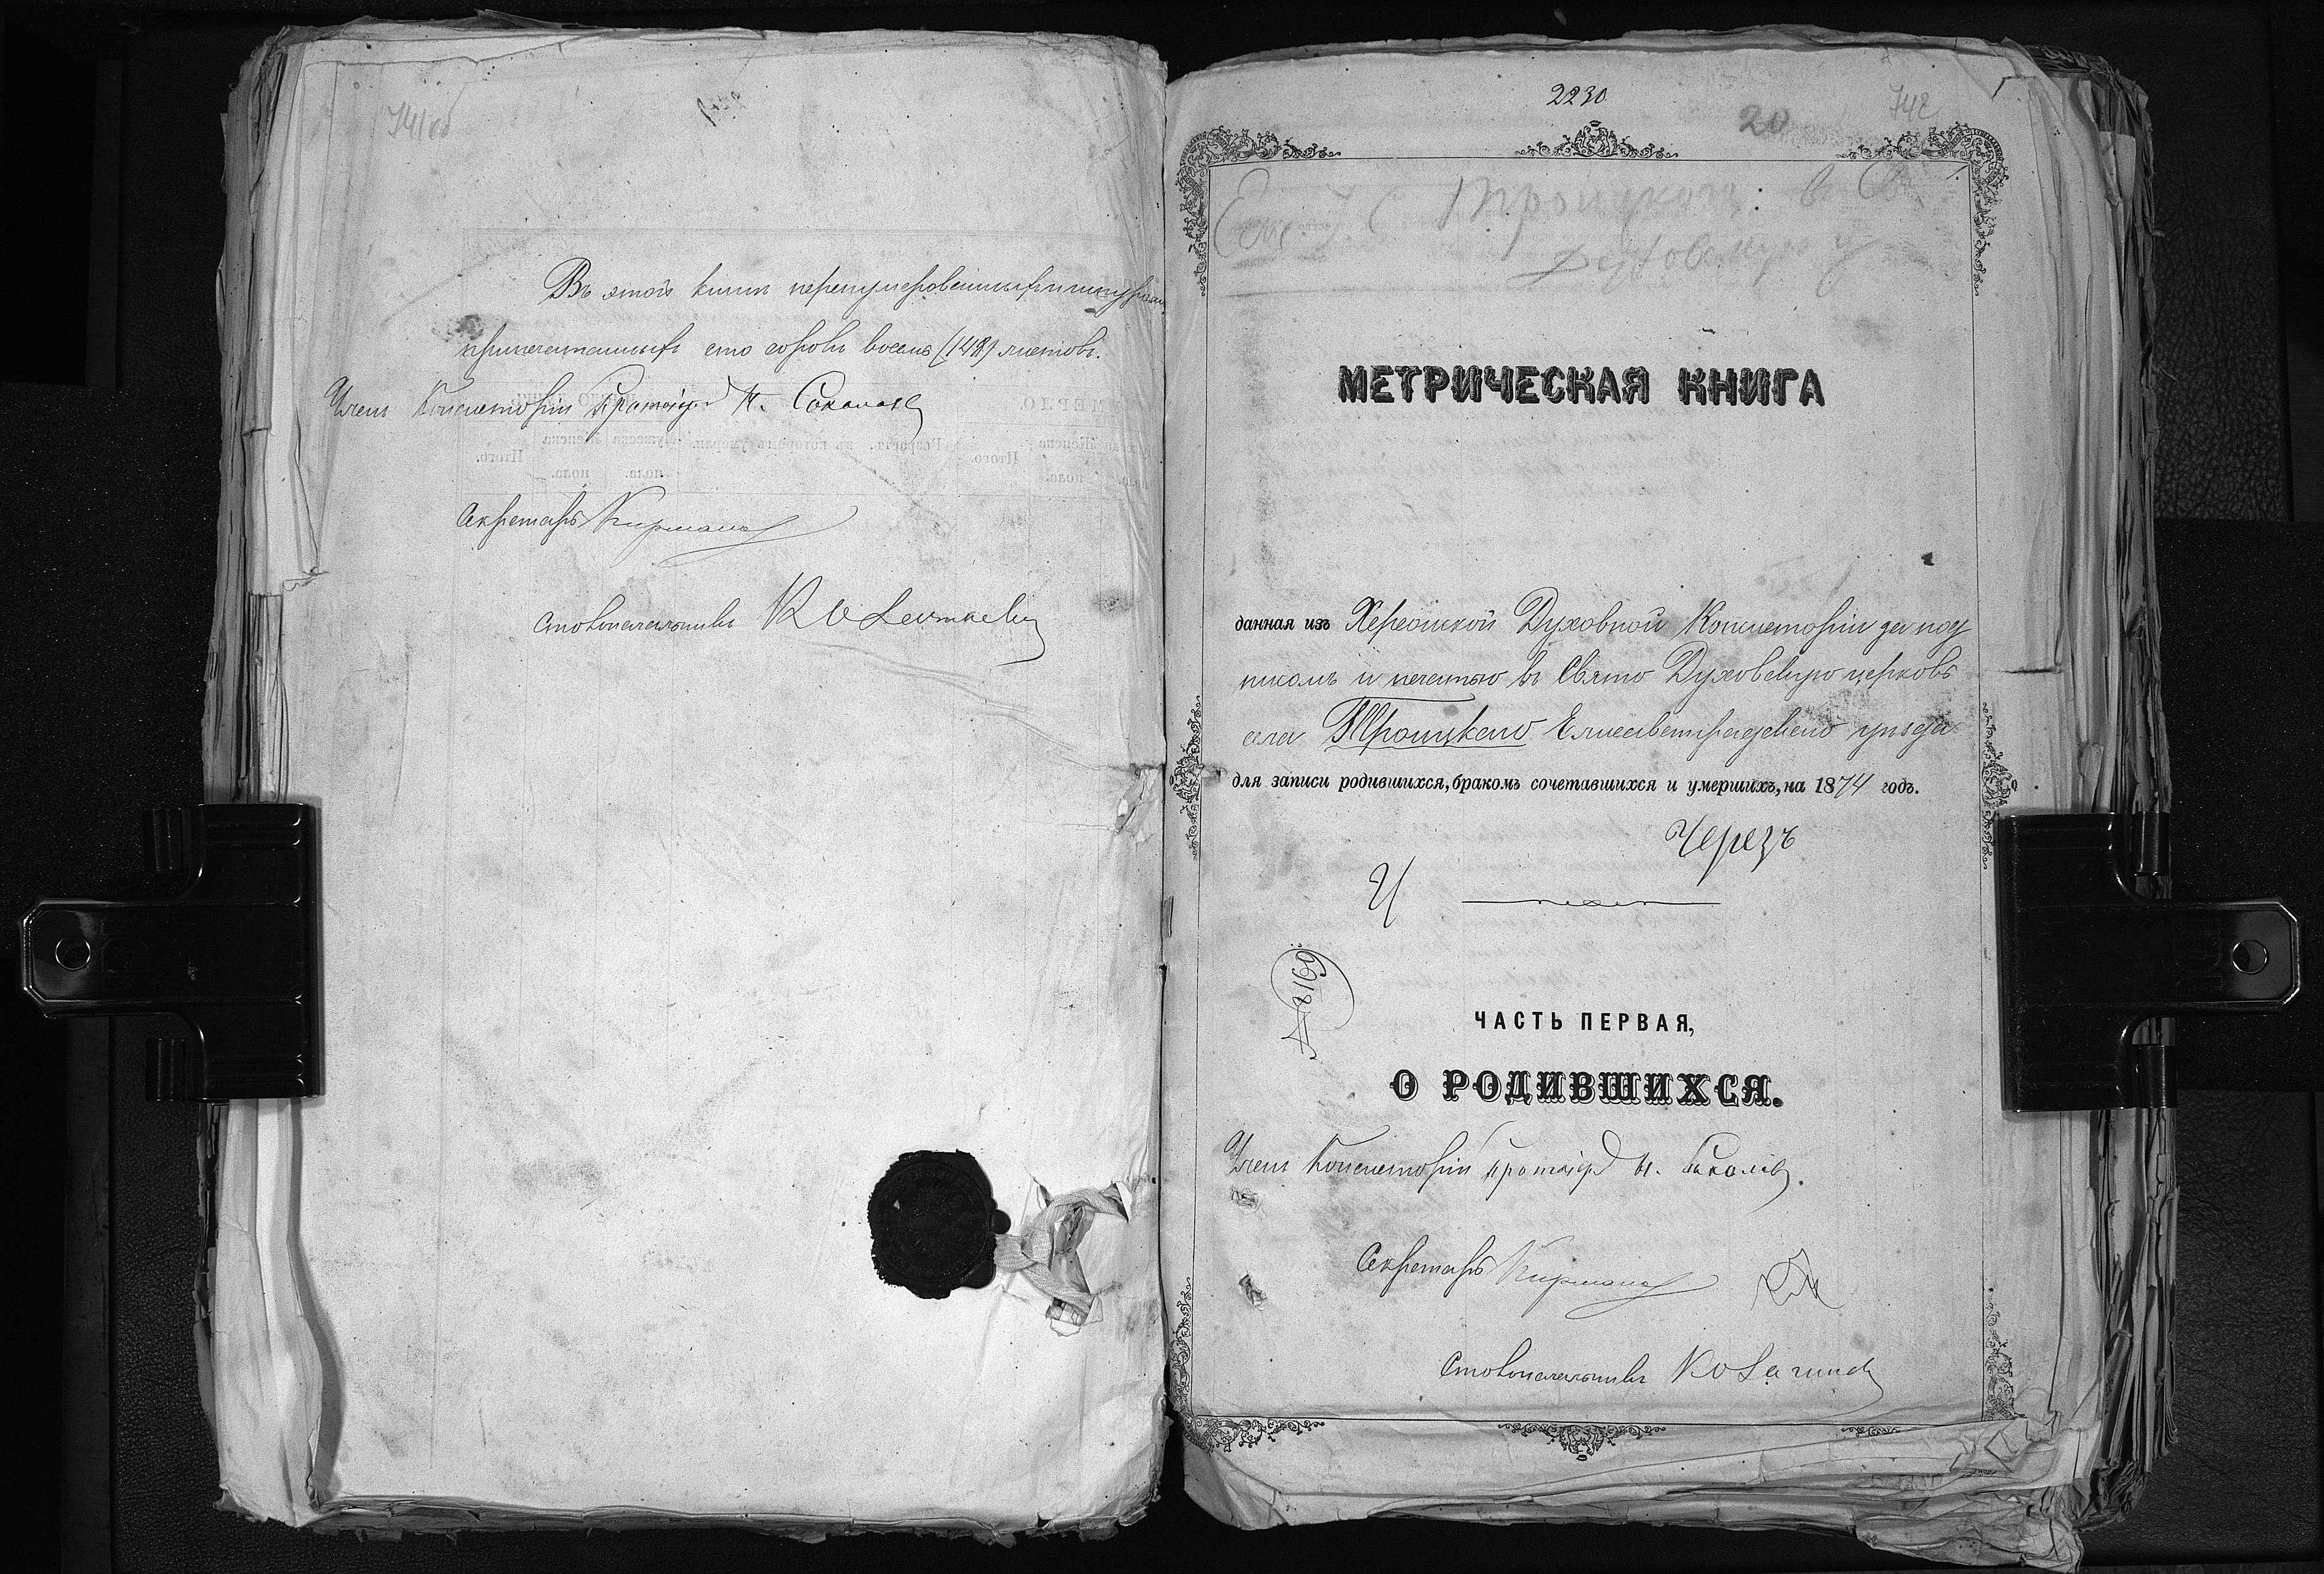 741об
Въ этой книгѣ перенумерованныхъ, прошнурован
припечатанныхъ сто сорокъ восемь (148) листовъ.
Членъ Консисторіи Протоіерей Н. Соколовъ
Секретарь
Столоначальникъ
2230
20
742
Троицкое
Духовскую
МЕТРИЧЕСКАЯ КНИГА
данная изъ Херсонской Духовной Консисторіи за под
писомъ и печатью въ Свято Духовскую церковь
села Троицкаго Елисаветградскаго уѣзда
для записи родившихся, бракомъ сочетавшихся и умершихъ, на 1874 годъ.
Черезъ
8169
ЧАСТЬ ПЕРВАЯ,
О РОДИВШИХСЯ.
Членъ Консисторіи Протоіерей Н. Соколовъ.
Секретарь
Столоначальникъ